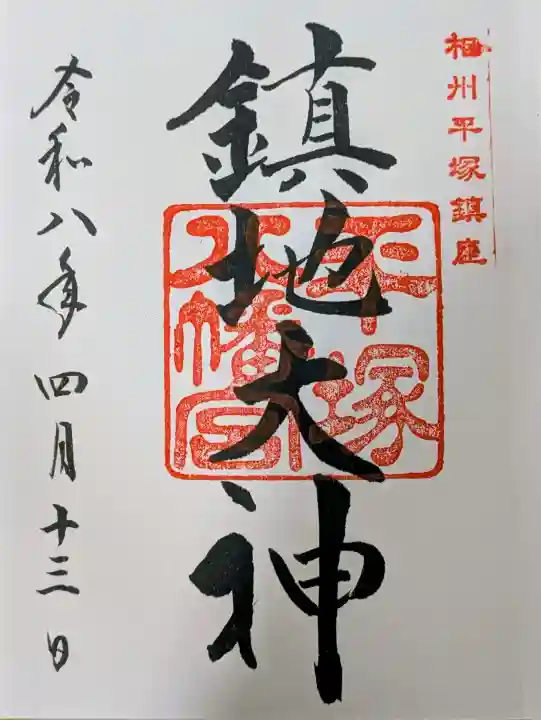 相州平塚鎮座
鎮地大神
平塚八幡宮
令和八年四月十三日